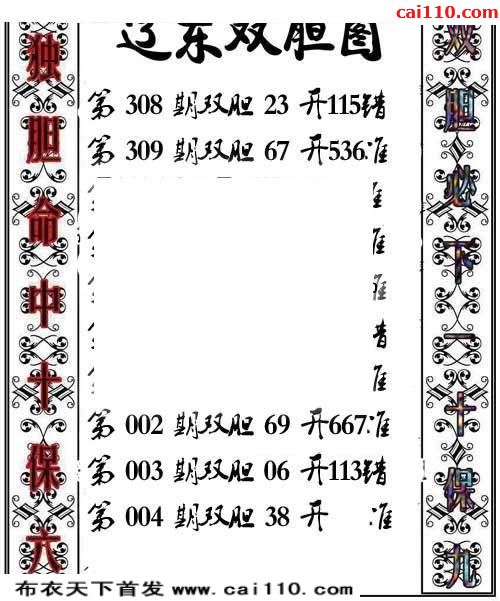 cai110.com
辽东双胆图
独胆命中十保六
双胆必下一十保九
第 308 期双胆 23 开115错
第 309 期双胆 67 开536准
准
准
准
错
准
第 002 期双胆 69 开667准
第 003 期双胆 06 开113错
第 004 期双胆 38 开 准
布衣天下首发 www.cai110.com